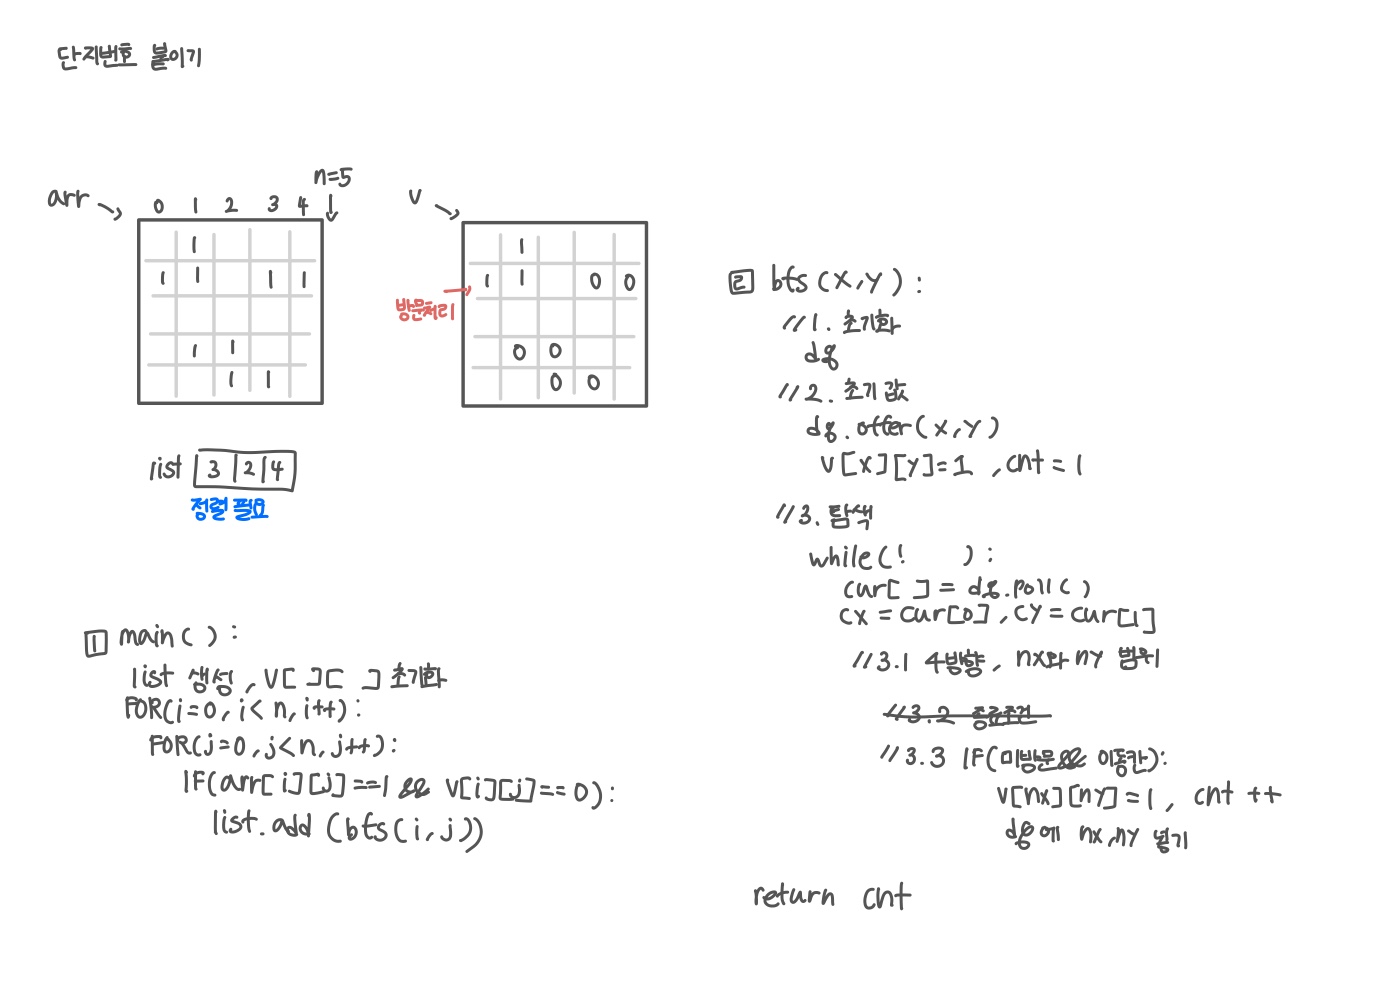 단지번호 붙이기
n=5
arr
0 1 2 3 4
1
1 1 1 1
1 1
1 1
v
1
1 1 0 0
0 0
0 0
방문처리
list 3 2 4
정렬 필요
1 main( ):
list 생성, v[ ][ ] 초기화
FOR(i=0, i<n, i++):
FOR(j=0, j<n, j++):
IF(arr[i][j]==1 && v[i][j]==0):
list.add (bfs(i,j))
2 bfs(x,y):
//1. 초기화
dq
//2. 초기 값
dq.offer(x,y)
v[x][y]=1, cnt=1
//3. 탐색
while(! ):
cur[ ] = dq.poll()
cx = cur[0], cy = cur[1]
//3.1 4방향, nx와 ny 범위
//3.2 종료조건
//3.3 IF(미방문 && 이동칸):
v[nx][ny]=1, cnt ++
dq에 nx,ny 넣기
return cnt